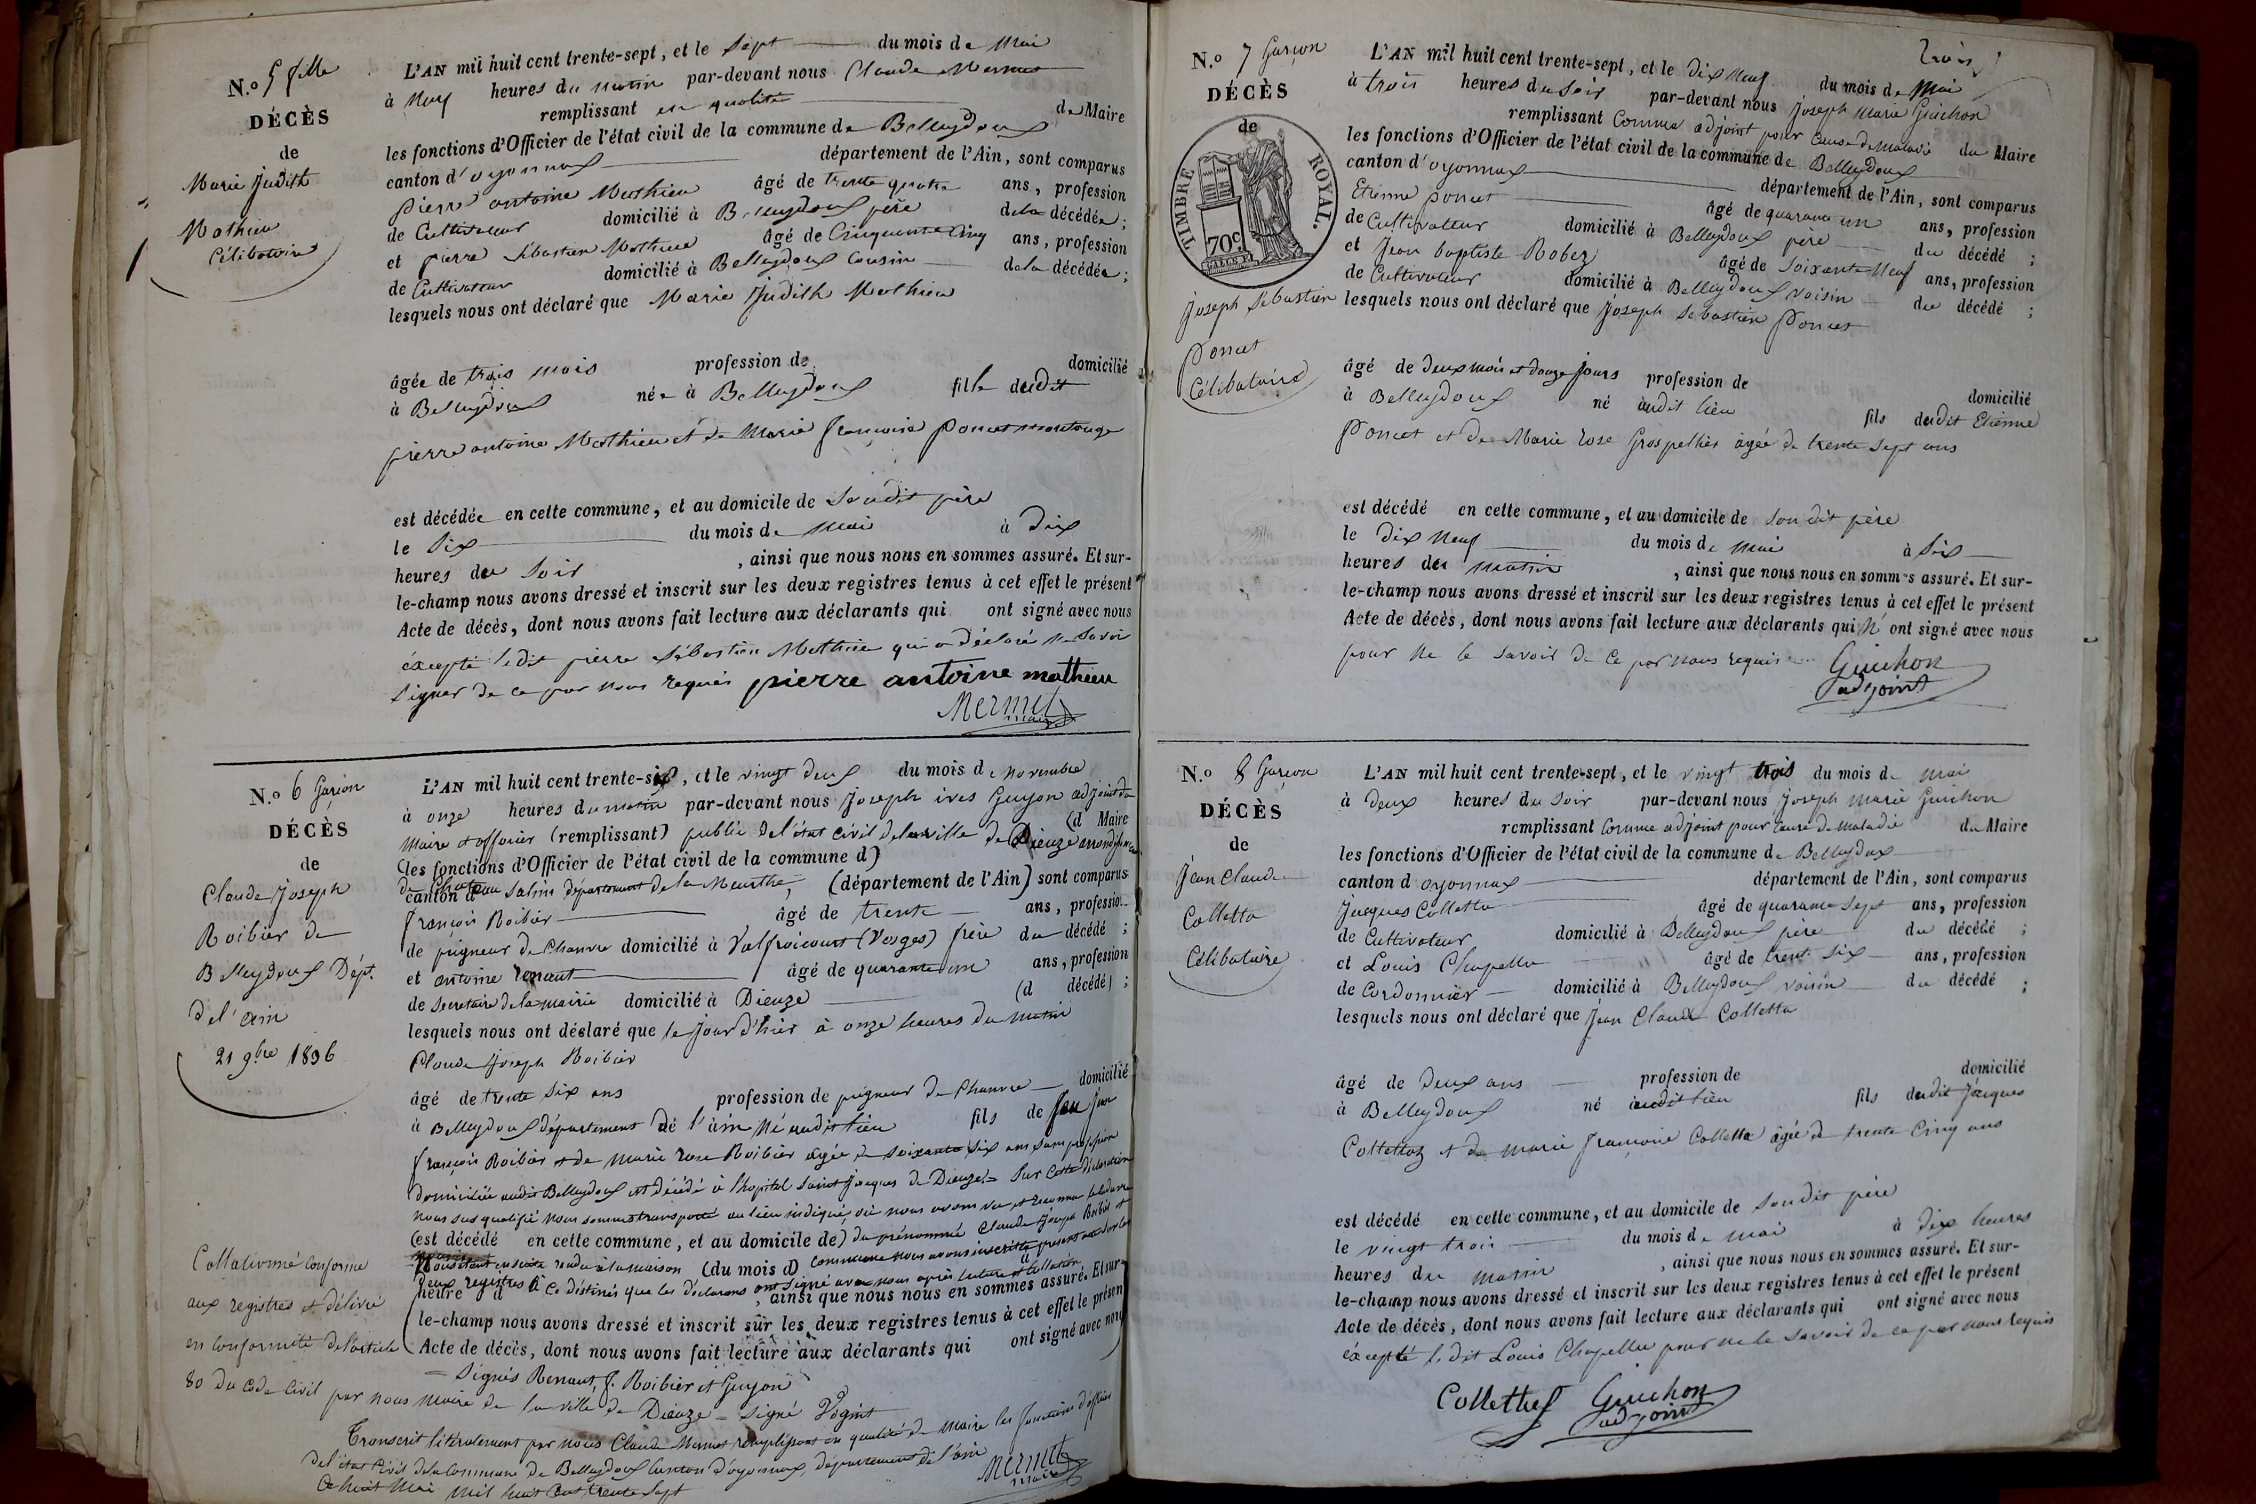 N.o 5 fille
DÉCÈS
de
Marie Judith
Mathieu
Célibataire
L'AN mil huit cent trente-sept, et le Sept du mois de Mai
à Neuf heures du matin par-devant nous Claude Mermet
remplissant en qualité de Maire
les fonctions d'Officier de l'état civil de la commune de Belleydoux
canton d'oyonnax département de l'Ain, sont comparus
pierre antoine Mathieu âgé de trente quatre ans, profession
de Cultivateur domicilié à Belleydoux père de la décédée ;
et pierre Sébastien Mathieu âgé de Cinquante Cinq ans, profession
de Cultivateur domicilié à Belleydoux Cousin de la décédée ;
lesquels nous ont déclaré que Marie Judith Mathieu
âgée de trois mois profession de domicilié
à Belleydoux née à Belleydoux fille dudit
pierre antoine Mathieu et de Marie françoise Poncet montange
est décédée en cette commune, et au domicile de Soudit père
le Six du mois de Mai à Dix
heures du Soir , ainsi que nous nous en sommes assuré. Et sur-
le-champ nous avons dressé et inscrit sur les deux registres tenus à cet effet le présent
Acte de décès, dont nous avons fait lecture aux déclarants qui ont signé avec nous
éxcepté ledit pierre Sébastien Mathieu qui a déclaré ne Savoir
Signer de ce par nous requis pierre antoine mathieu
Mermet
maire
N.o 6 Garçon
DÉCÈS
de
Claude Joseph
Roibier de
Belleydoux Dépt.
de l'ain
21 9bre 1836
L'AN mil huit cent trente-six, et le vingt deux du mois de novembre
à onze heures du matin par-devant nous Joseph ives Guyon adjoint du
Maire et officier (remplissant) public de l'état civil de la ville de Dieuze arrondissement (d Maire
(les fonctions d'Officier de l'état civil de la commune d)
de Chateau Salins département de la Meurthe, (département de l'Ain) sont comparus
canton d
françois Roibier âgé de trente ans, profession
de peigneur de Chanvre domicilié à Valfroicourt (Vosges) frère du décédé ;
et antoine renaut âgé de quarante un ans, profession
de Secretaire de la mairie domicilié à Dieuze (d décédé) ;
lesquels nous ont déclaré que le jour d'hier à onze heures du matin
Claude Joseph Roibier
âgé de trente Six ans profession de peigneur de Chanvre domicilié
à Belleydoux département de l'ain Né audit lieu fils de feu Jean
françois Roibier et de Marie rose Roibier âgée de soixante Six ans Sans profession
domiciliée audit Belleydoux est décédé à l'hopital Saint Jacques de Dieuze. Sur Cette déclaration
nous sus qualifié nous sommes transporté au lieu indiqué, où nous avons vu et reconnu le cadavre
(est décédé en cette commune, et au domicile de) du prénommé Claude Joseph Roibier et
Nous étant ensuite rendu à la maison (du mois d) Commune nous avons inscrit le présent acte sur les
Deux registres à Ce déstinés que les déclarans ont signé avec nous après lecture et Collation.
heure d , ainsi que nous nous en sommes assuré. Et sur-
le-champ nous avons dressé et inscrit sur les deux registres tenus à cet effet le présent
Acte de décès, dont nous avons fait lecture aux déclarants qui ont signé avec nous
Signés Renaut, f. Roibier et Guyon
Collationné Conforme
aux registres et délivré
en Conformité de l'article
80 du Code Civil par nous Maire de la ville de Dieuze Signé
Transcrit litéralement par nous Claude Mermet remplissant en qualité de Maire les fonctions d'officier
de l'état Civil de la Commune de Belleydoux Canton d'oyonnax, département de l'ain
Ce huit Mai Mil huit Cent trente Sept
Mermet
maire
trois
N.o 7 Garçon
DÉCÈS
de
TIMBRE ROYAL.
70c.
Joseph Sébastien
Poncet
Célibataire
L'AN mil huit cent trente-sept, et le Dix Neuf du mois de Mai
à trois heures du Soir par-devant nous Joseph Marie Guichon
remplissant Comme adjoint pour Cause de Maladie du Maire
les fonctions d'Officier de l'état civil de la commune de Belleydoux
canton d'oyonnax département de l'Ain, sont comparus
Etienne Poncet âgé de quarante un ans, profession
de Cultivateur domicilié à Belleydoux père du décédé ;
et Jean baptiste Robez âgé de Soixante Neuf ans, profession
de Cultivateur domicilié à Belleydoux voisin du décédé ;
lesquels nous ont déclaré que Joseph Sébastien Poncet
âgé de Deux mois et douze jours profession de domicilié
à Belleydoux né audit lieu fils dudit Etienne
Poncet et de Marie rose Grospellier âgée de trente Sept ans
est décédé en cette commune, et au domicile de Son dit père
le Dix Neuf du mois de Mai à Six
heures du matin , ainsi que nous nous en sommes assuré. Et sur-
le-champ nous avons dressé et inscrit sur les deux registres tenus à cet effet le présent
Acte de décès, dont nous avons fait lecture aux déclarants qui N' ont signé avec nous
pour Ne le Savoir de Ce par Nous requis
Guichon
adjoint
N.o 8 Garçon
DÉCÈS
de
Jean Claude
Colletta
Célibataire
L'AN mil huit cent trente-sept, et le vingt trois du mois de Mai
à Deux heures du Soir par-devant nous Joseph Marie Guichon
remplissant Comme adjoint pour Cause de Maladie du Maire
les fonctions d'Officier de l'état civil de la commune de Belleydoux
canton d oyonnax département de l'Ain, sont comparus
Jacques Colletta âgé de quarante Sept ans, profession
de Cultivateur domicilié à Belleydoux père du décédé ;
et Louis Chapella âgé de trente Six ans, profession
de Cordonnier domicilié à Belleydoux voisin du décédé ;
lesquels nous ont déclaré que Jean Claude Colletta
âgé de Deux ans profession de domicilié
à Belleydoux né audit lieu fils dudit Jacques
Collettaz et de marie françoise Colletta âgée de trente Cinq ans
est décédé en cette commune, et au domicile de Son dit père
le vingt trois du mois de Mai à Dix heures
heures du matin , ainsi que nous nous en sommes assuré. Et sur-
le-champ nous avons dressé et inscrit sur les deux registres tenus à cet effet le présent
Acte de décès, dont nous avons fait lecture aux déclarants qui ont signé avec nous
éxcepté le dit Louis Chapella pour ne le Savoir de ce par nous requis
Guichon
adjoint